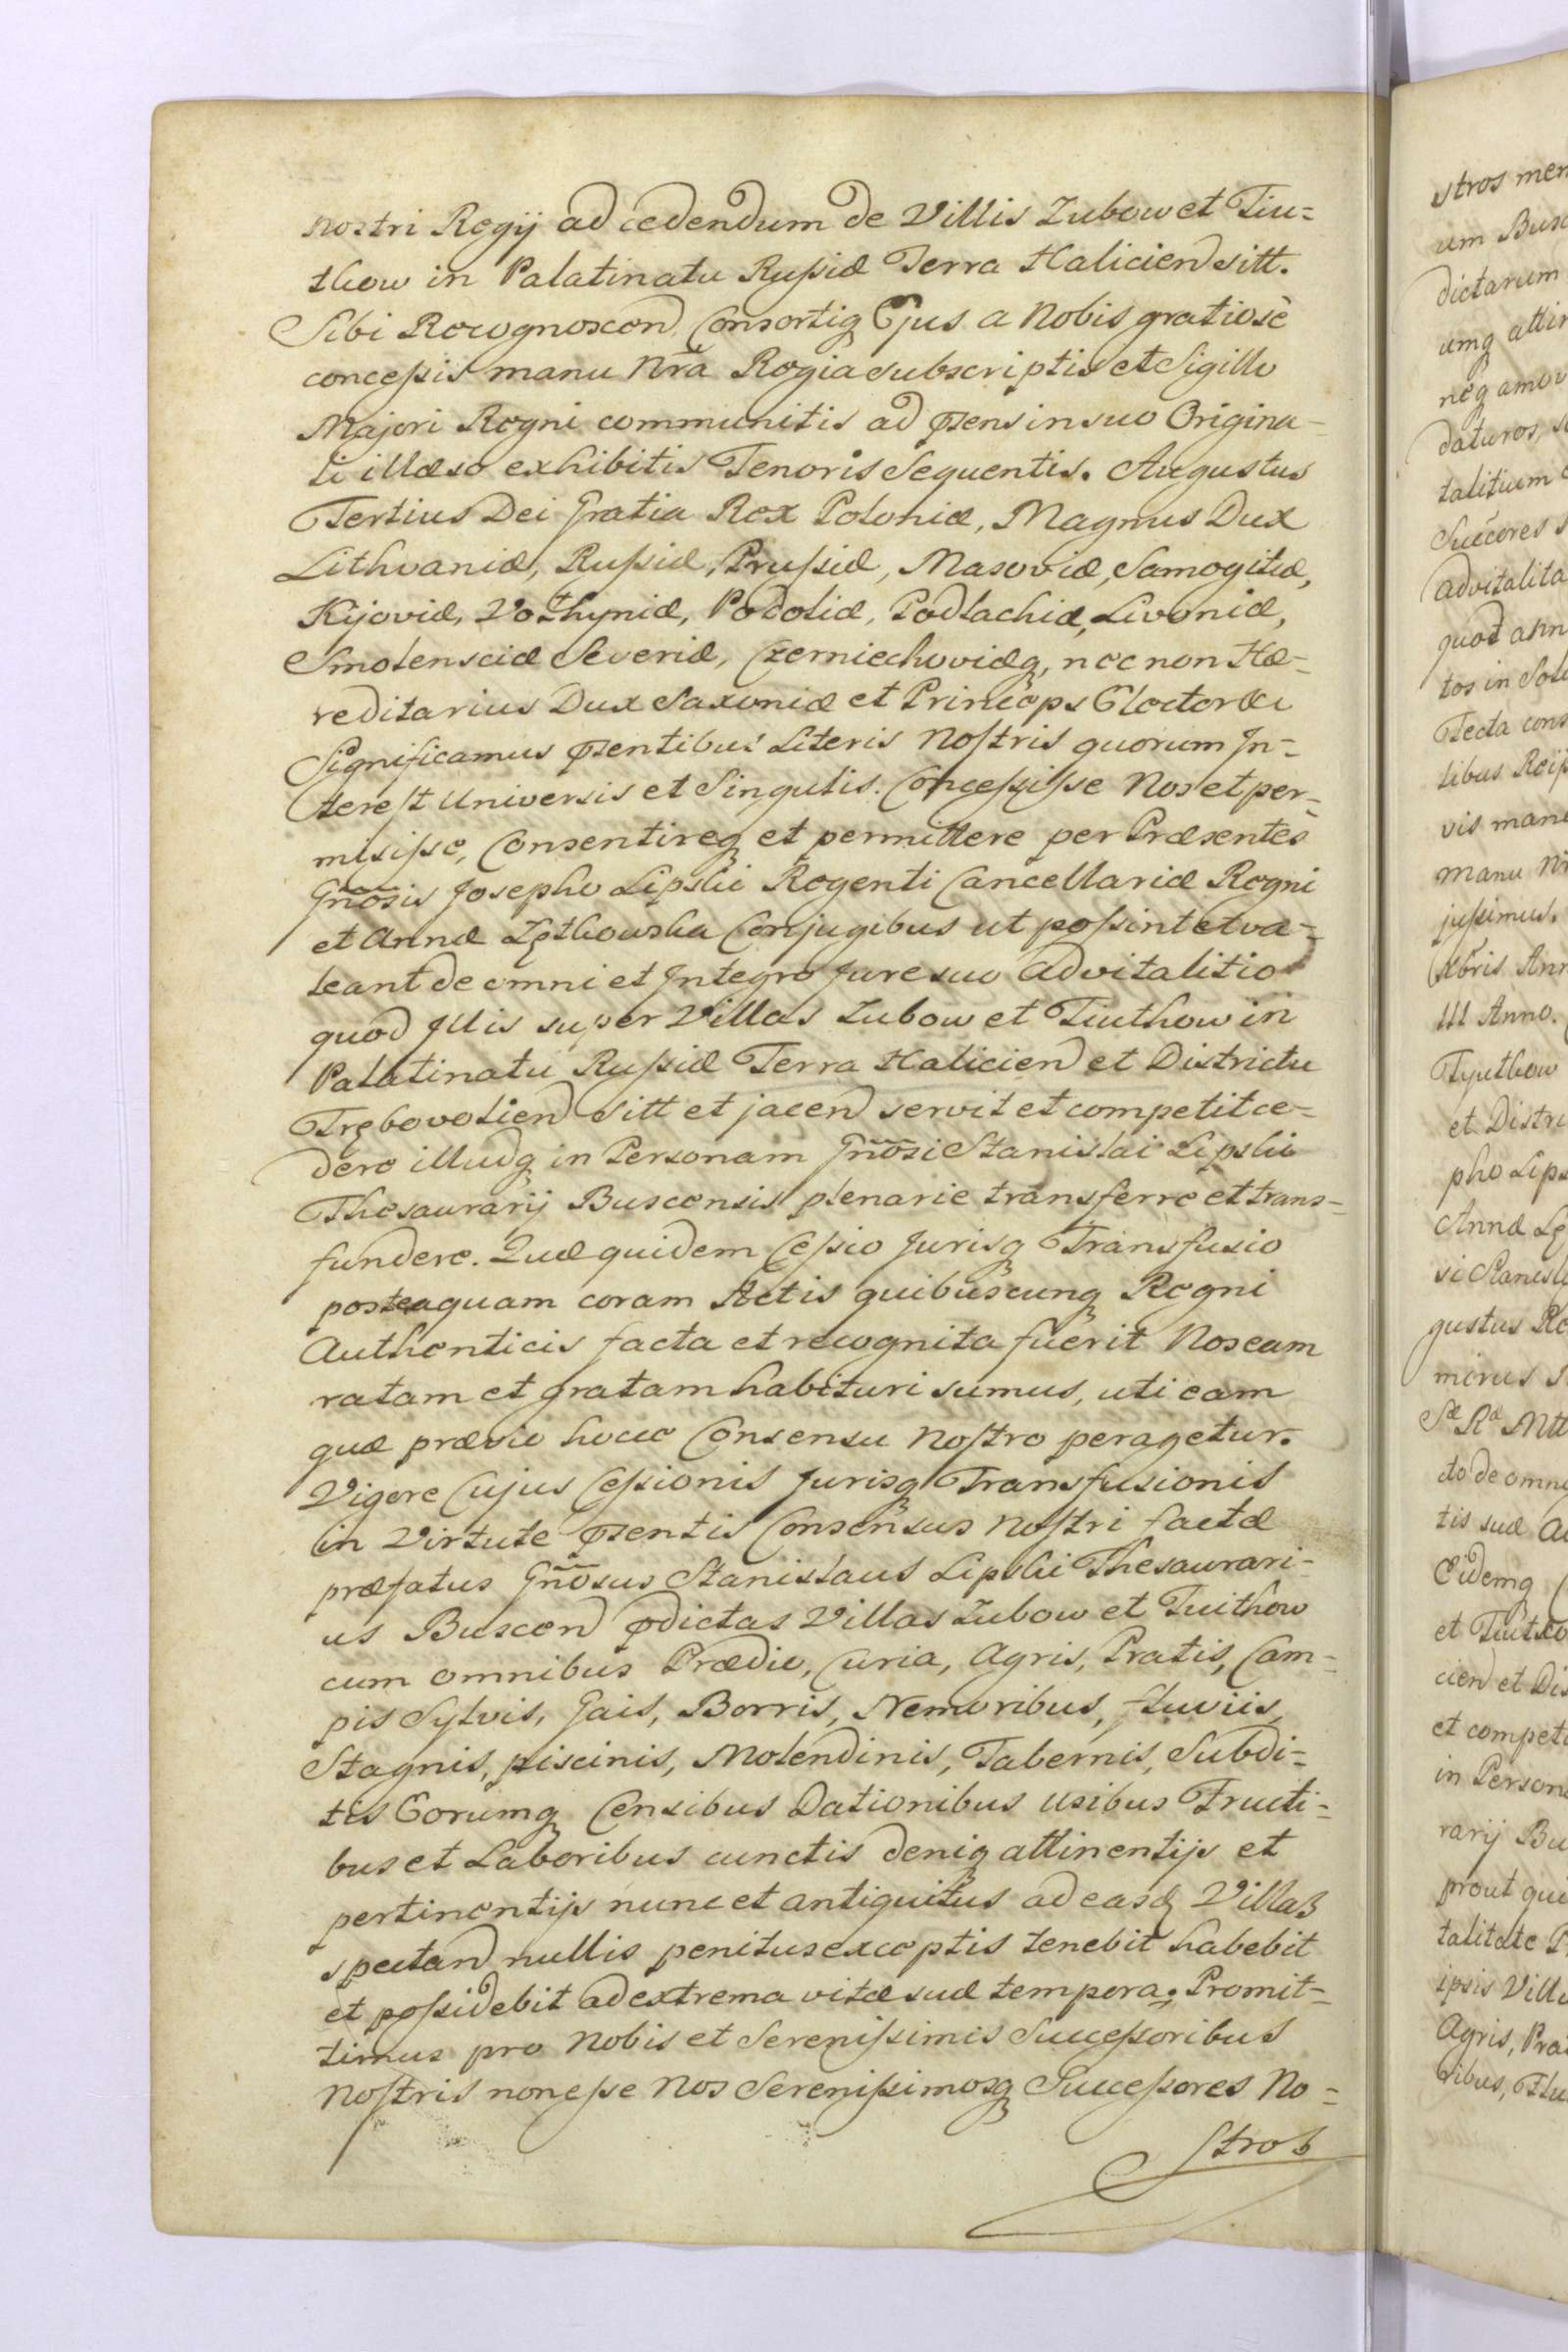 nostri Regij ad cedendum de Villis Zubow et Tiu=
tkow in Palatinatu Rußiæ Terra Halicien sitt.
Sibi Recognoscen Consortiq Ejus a Nobis gratiosè
conceßis manu Nra Regia subscriptis et Sigillo
Majori Regni communitis ad psens in suo Origina=
li illæso exhibitis Tenoris Sequentis. Augustus
Tertius Dei Gratia Rex Poloniæ, Magnus Dux
Lithvaniæ, Rußiæ, Prußiæ, Masoviæ, Samogitiæ,
Kijoviæ, Volhyniæ, Podoliæ, Podlachiæ, Livoniæ,
Smolensciæ Severiæ, Czerniechoviæq, nec non Hæ=
reditarius Dux Saxoniæ et Princeps Elector &c
Significamus psentibus Literis Nostris quorum In=
terest Universis et Singulis. Conceßiße Nos et per=
misiße, Consentireq et permittere per Præsentes
Gnosis Josepho Lipski Regenti Cancellariæ Regni
et Annæ Lętkowska Conjugibus ut poßint et va=
leant de omni et Integro Jure suo advitalitio
quod Illis super Villas Zubow et Tiutkow in
Palatinatu Rußiæ Terra Halicien et Districtu
Trębovolien Sitt et jacen servit et competit ce=
dere illudq in Personam Gnosi Stanislai Lipski
Thesaurarij Buscensis plenarie transferre et trans=
fundere. Quæ quidem Ceßio Jurisq Transfusio
posteaquam coram Actis quibuscunq Regni
Authenticis facta et recognita fuerit Nos eam
ratam et gratam habituri sumus, uti eam
quæ prævio hocce Consensu Nostro peragetur.
Vigore Cujus Ceßionis Jurisq Transfusionis
in Virtute psentis Consensus Nostri factæ
præfatus Gnosus Stanislaus Lipski Thesaurari=
us Buscen pdictas Villas Zubow et Tuitkow
cum omnibus Prædio, Curia, Agris, Pratis, Cam=
pis Sylvis, Gais, Borris, Nemoribus, fluviis,
Stagnis, piscinis, Molendinis, Tabernis, Subdi=
tis Eorumq Censibus Dationibus Usibus Fructi=
bus et Laboribus cunctis deniq attinentijs et
pertinentijs nunc et antiquitus ad easd Villas
spectan nullis penitus exceptis tenebit habebit
et poßidebit ad extrema vitæ suæ tempora; Promit=
timus pro Nobis et Serenißimis Succeßoribus
Nostris non eße Nos Serenißimosq Succeßores No=
stros
stros
um Busc
dictarum
umq
neq
daturos,
talitium
Succores
advitalita
quod
tos in
Tecta
tibus
vis
manu
jußimus.
Xbris
III Anno.
Tyutkow
et Distri
pho Lips
Annæ Lę
si Stanisl
gustus
Sæ Ræ
do de omni
tis suæ
Eidemq
et
cien et Dis
et compet
in Person
rarij Bu
prout qui
talitate
ipsis Vill
Agris, Pra
ribus, Flu